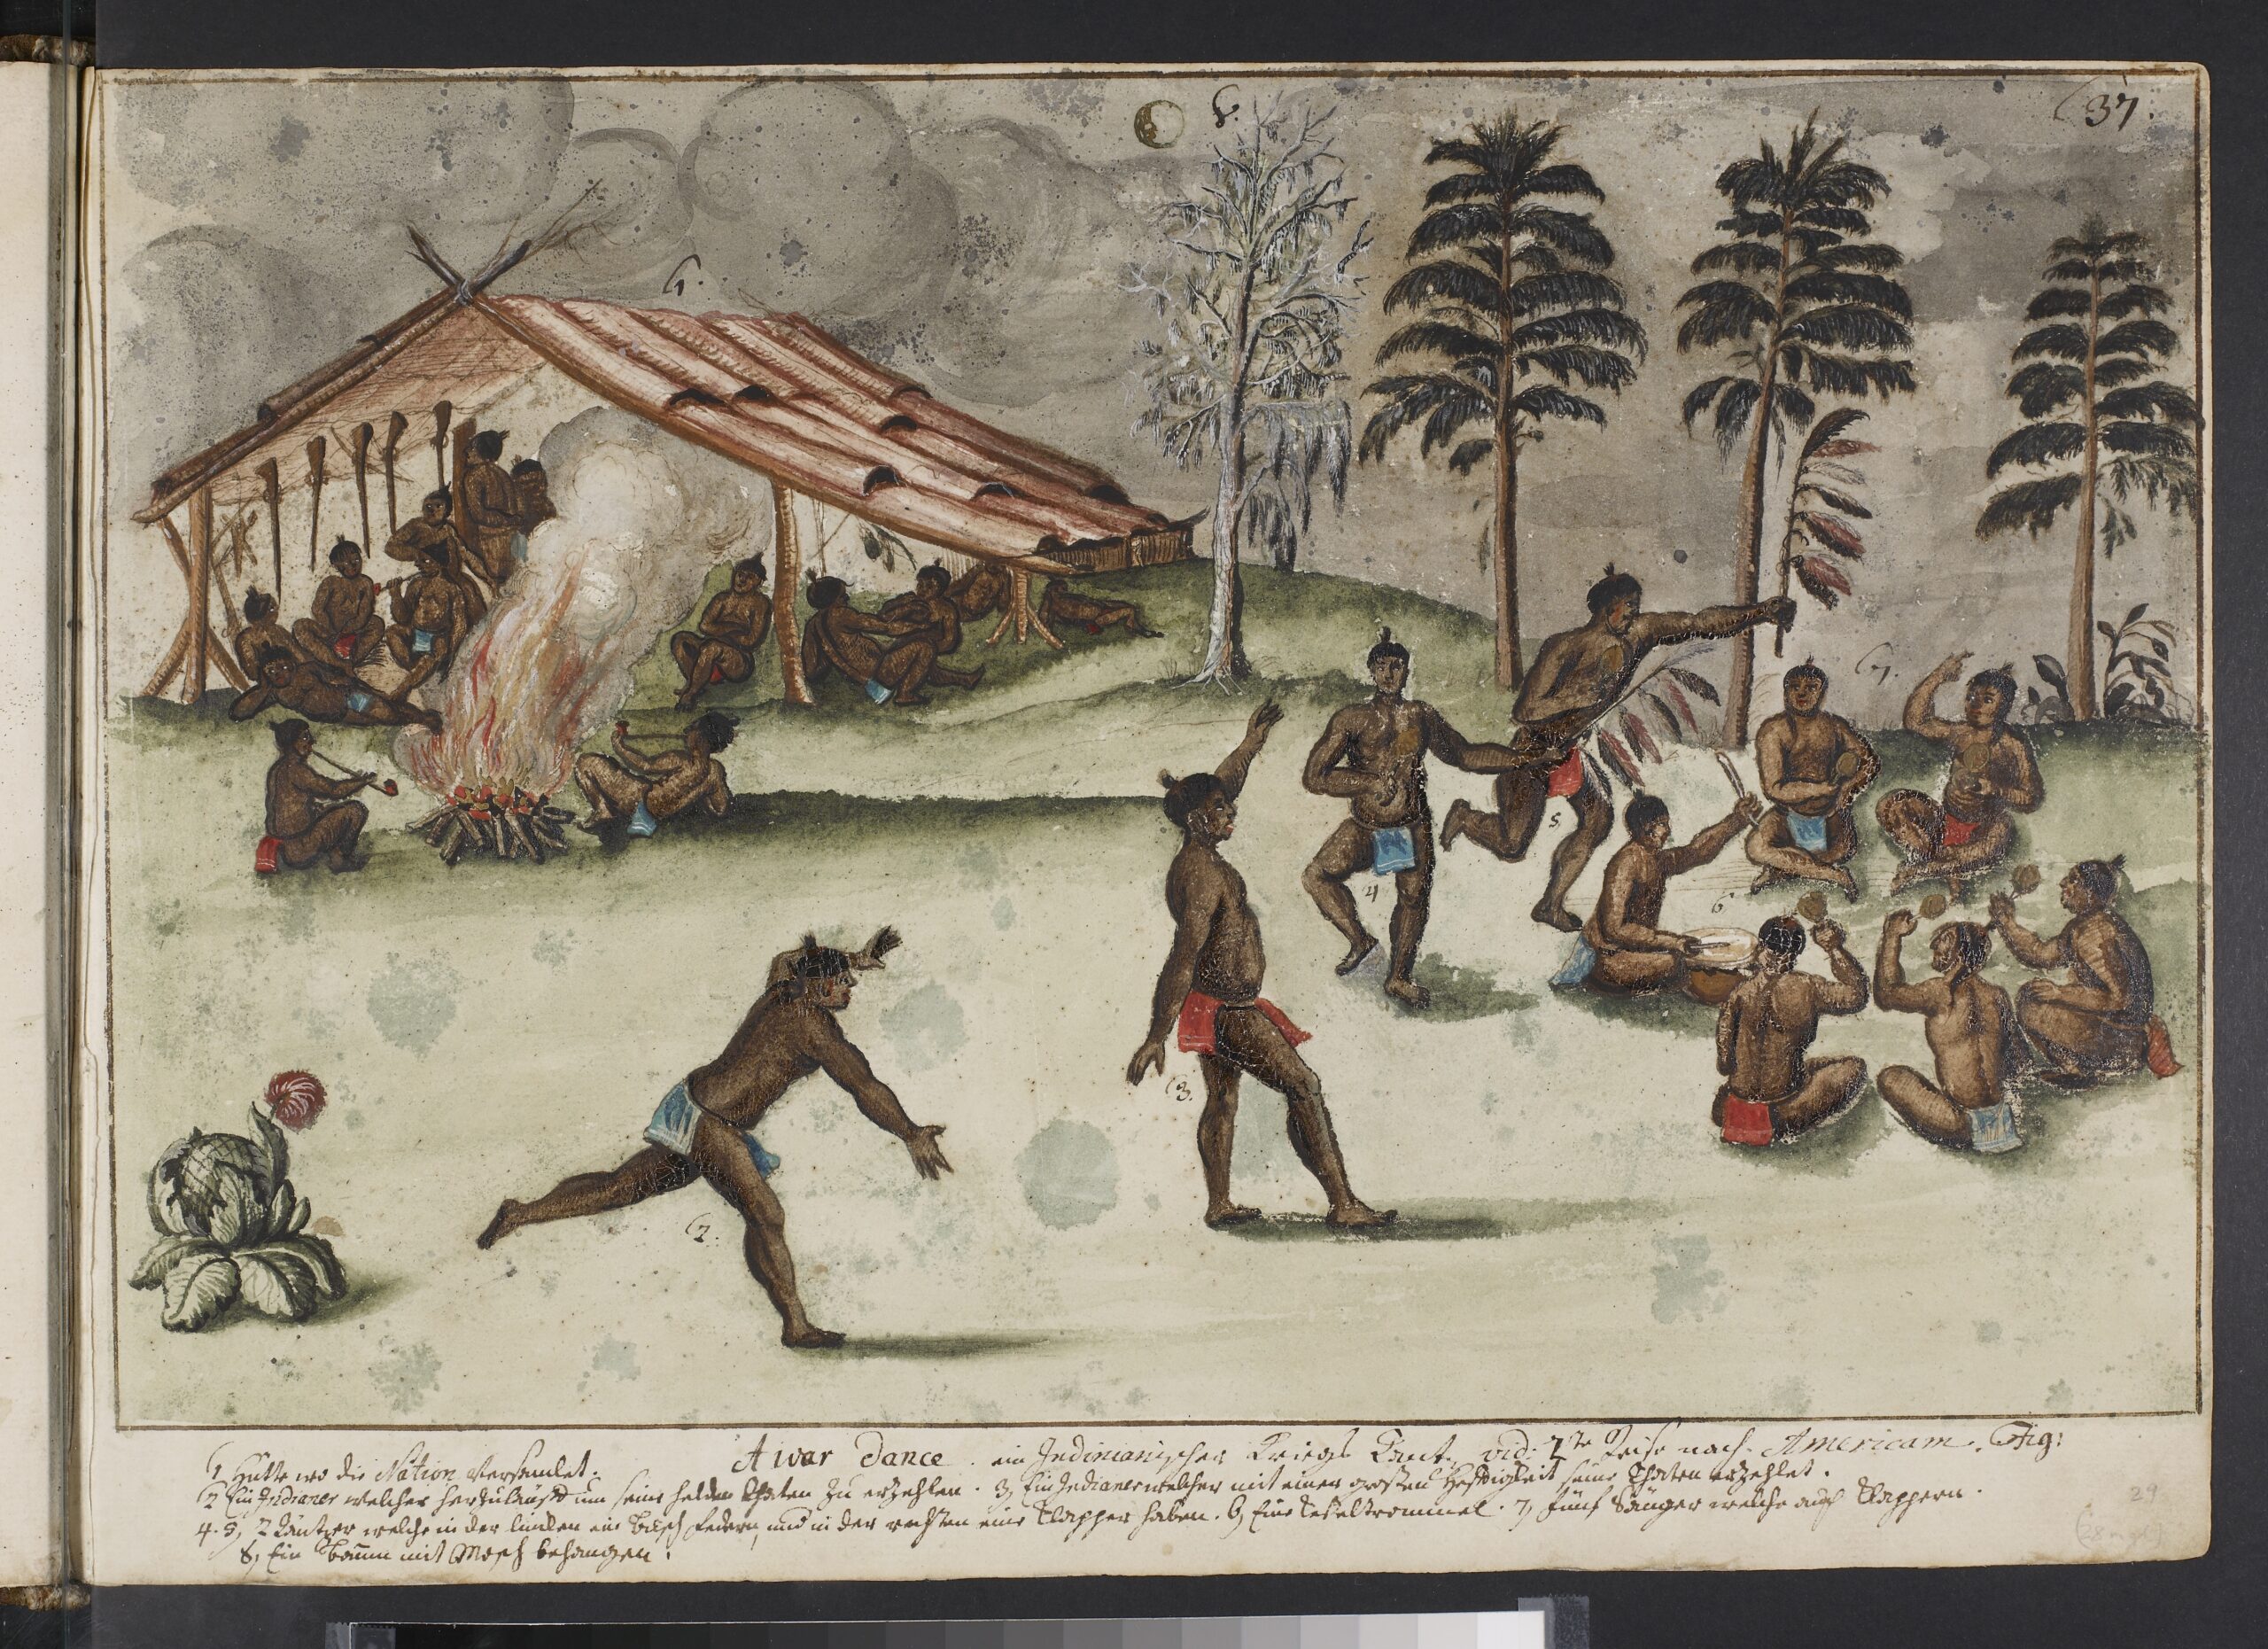 (37.
8.
1.
7.
5
4
6
3.
2.
A war dance. ein Indinianischer Kriegs Tantz, vid: 2te Reise nach Americam. Fig:
1 Hütte wo die Nation versamlet.
2 Ein Indianer welcher herzuläufft um seine helden Thaten zu erzehlen. 3, Ein Indianer welcher mit einer grosten Hefftigkeit seine Thaten erzehlet.
4. 5, 2 Täntzer welche in der lincken ein Busch federn, und in der rechten eine Klapper haben. 6, Eine Keseltrommel. 7, fünf Sänger welche auch Klappern.
8, Ein Baum mit Mosch behangen.
29